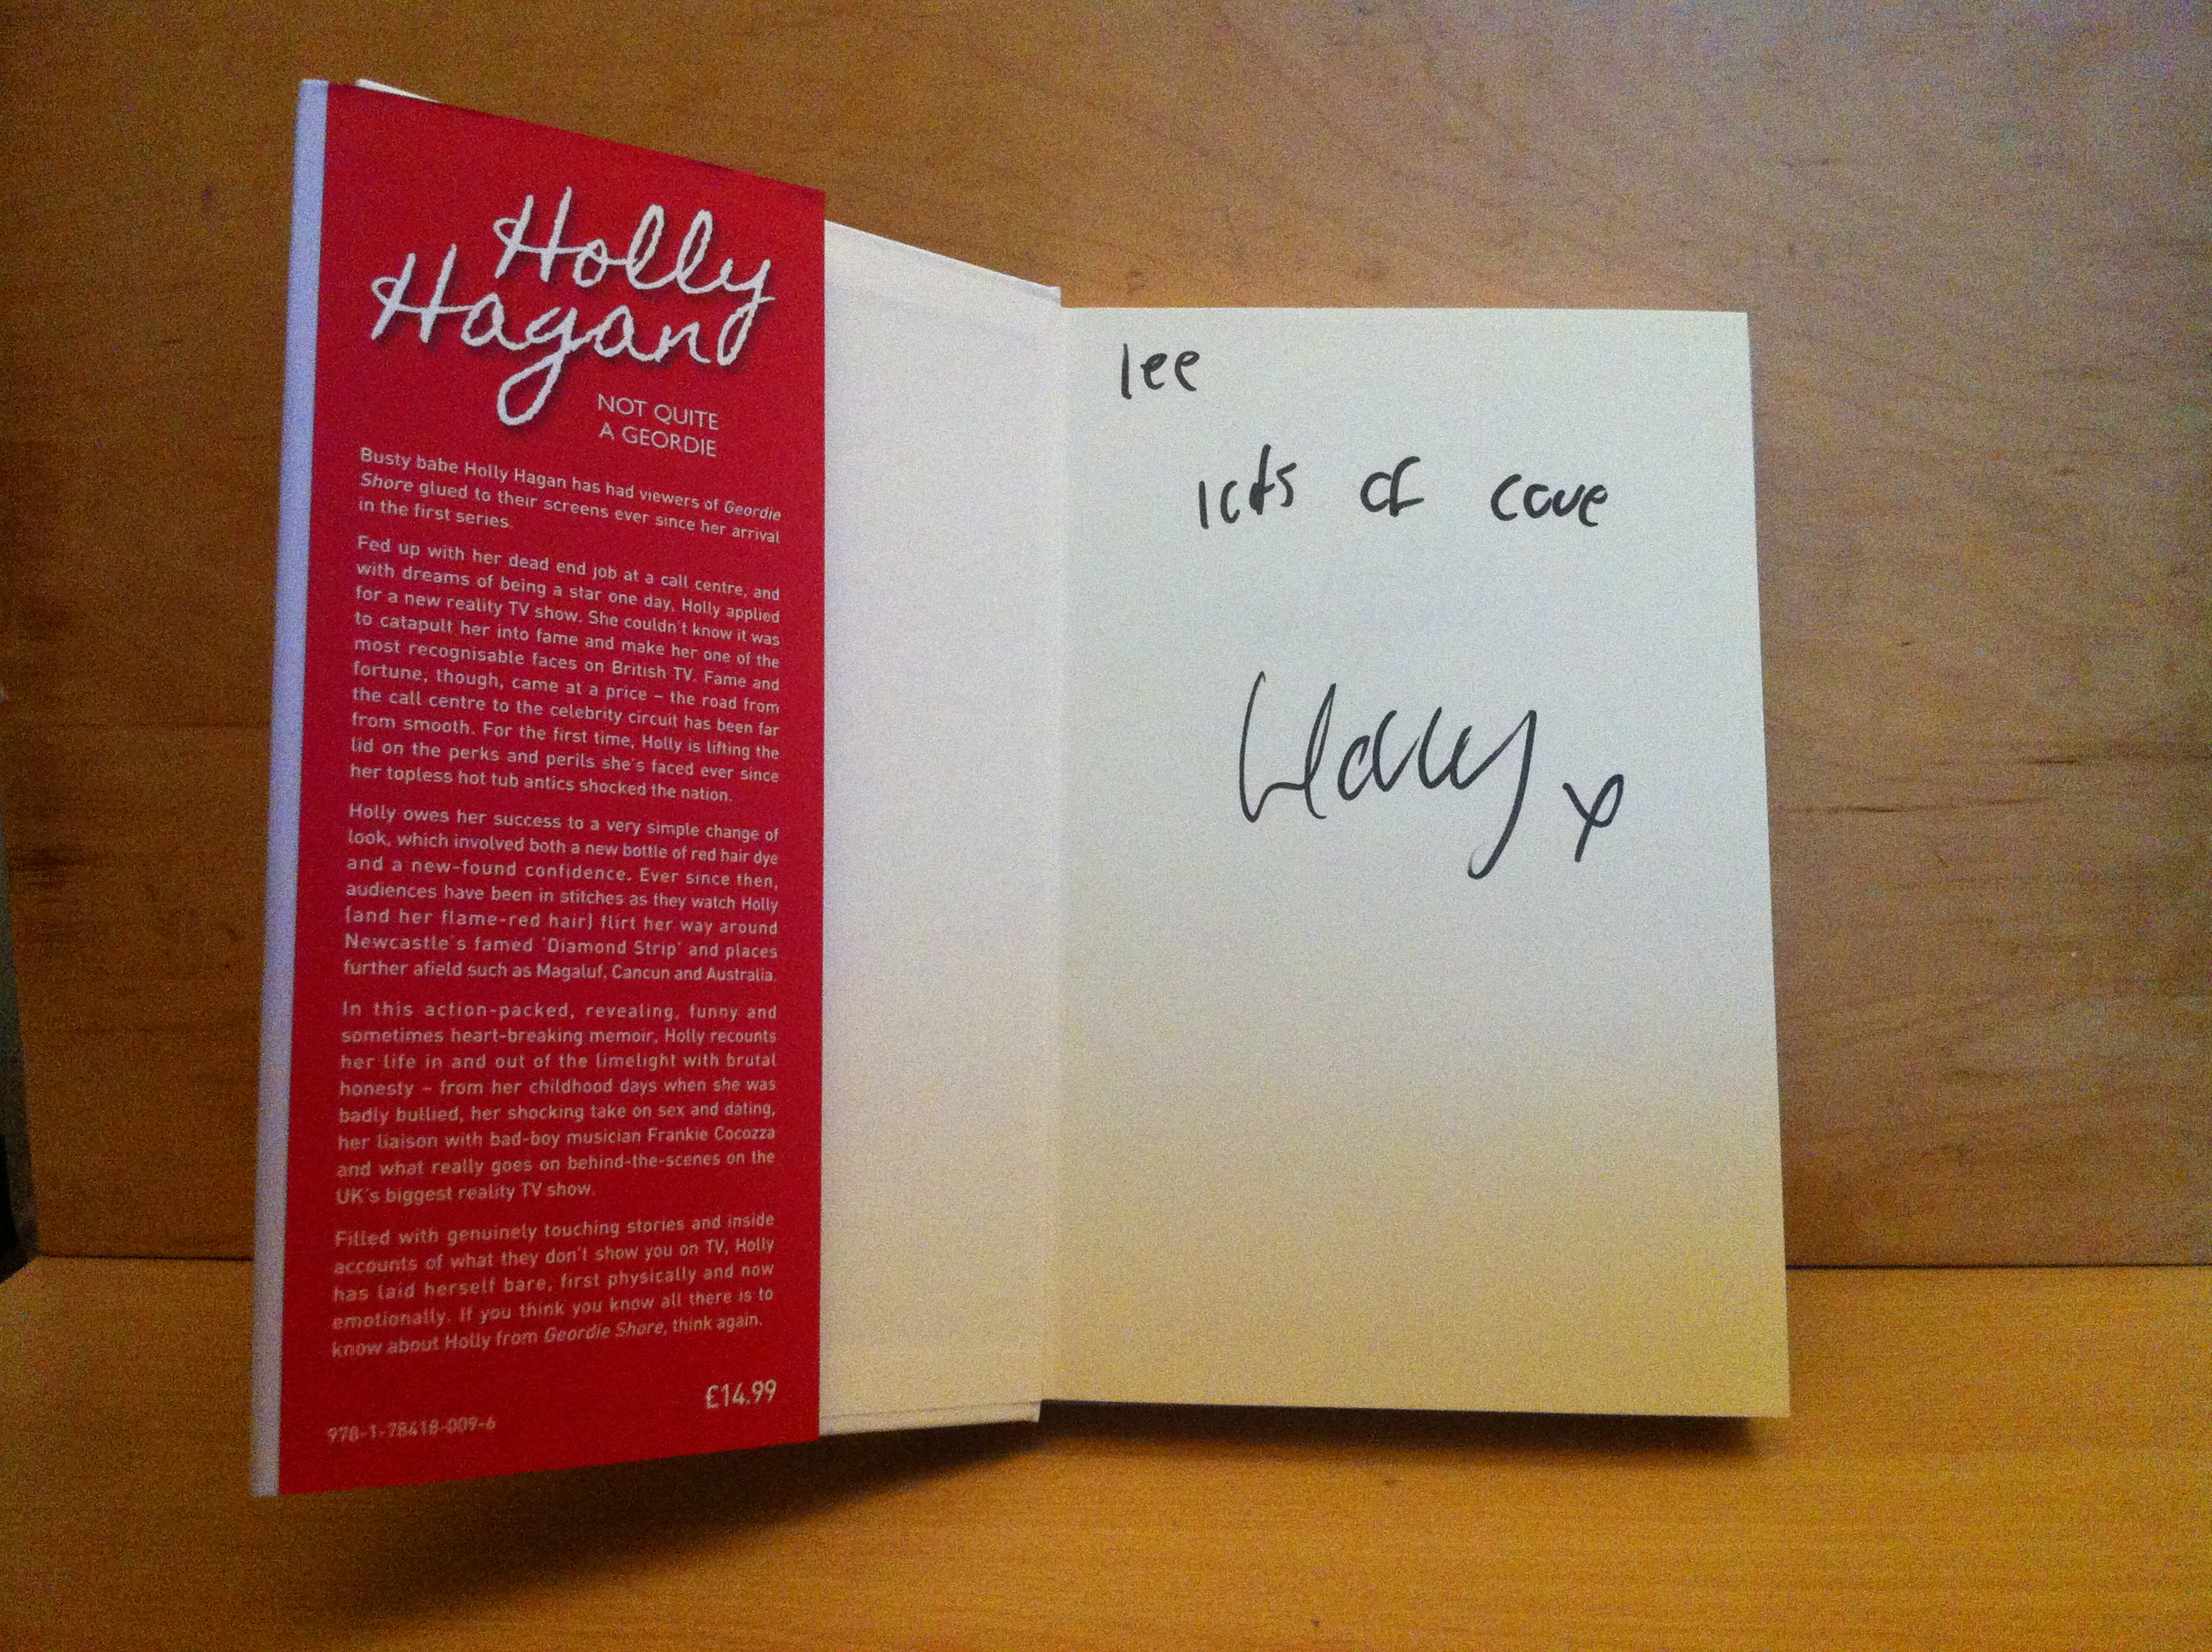 Holly
Hagan
NOT QUITE
A GEORDIE
Busty babe Holly Hagan has had viewers of Geordie
Shore glued to their screens ever since her arrival
in the first series.
Fed up with her dead end job at a call centre, and
with dreams of being a star one day, Holly applied
for a new reality TV show. She couldn't know it was
to catapult her into fame and make her one of the
most recognisable faces on British TV. Fame and
fortune, though, came at a price – the road from
the call centre to the celebrity circuit has been far
from smooth. For the first time, Holly is lifting the
lid on the perks and perils she's faced ever since
her topless hot tub antics shocked the nation.
Holly owes her success to a very simple change of
look, which involved both a new bottle of red hair dye
and a new-found confidence. Ever since then,
audiences have been in stitches as they watch Holly
(and her flame-red hair) flirt her way around
Newcastle's famed 'Diamond Strip' and places
further afield such as Magaluf, Cancun and Australia.
In this action-packed, revealing, funny and
sometimes heart-breaking memoir, Holly recounts
her life in and out of the limelight with brutal
honesty – from her childhood days when she was
badly bullied, her shocking take on sex and dating,
her liaison with bad-boy musician Frankie Cocozza
and what really goes on behind-the-scenes on the
UK's biggest reality TV show.
Filled with genuinely touching stories and inside
accounts of what they don't show you on TV, Holly
has laid herself bare, first physically and now
emotionally. If you think you know all there is to
know about Holly from Geordie Shore, think again.
£14.99
978-1-78418-009-6
lee
lots of love
Holly x